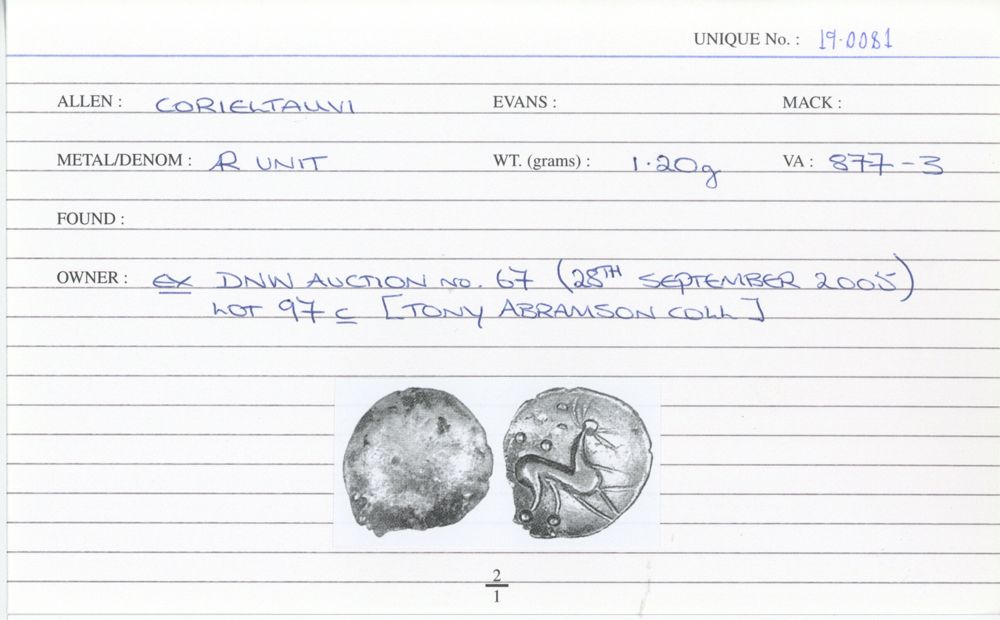 UNIQUE No. : 19·0081
ALLEN : CORIELTAUVI EVANS : MACK :
METAL/DENOM : Æ UNIT WT. (grams) : 1·20g VA : 877-3
FOUND :
OWNER : ex DNW AUCTION NO. 67 (28TH SEPTEMBER 2005)
LOT 97 c [TONY ABRAMSON COLL]
2
1